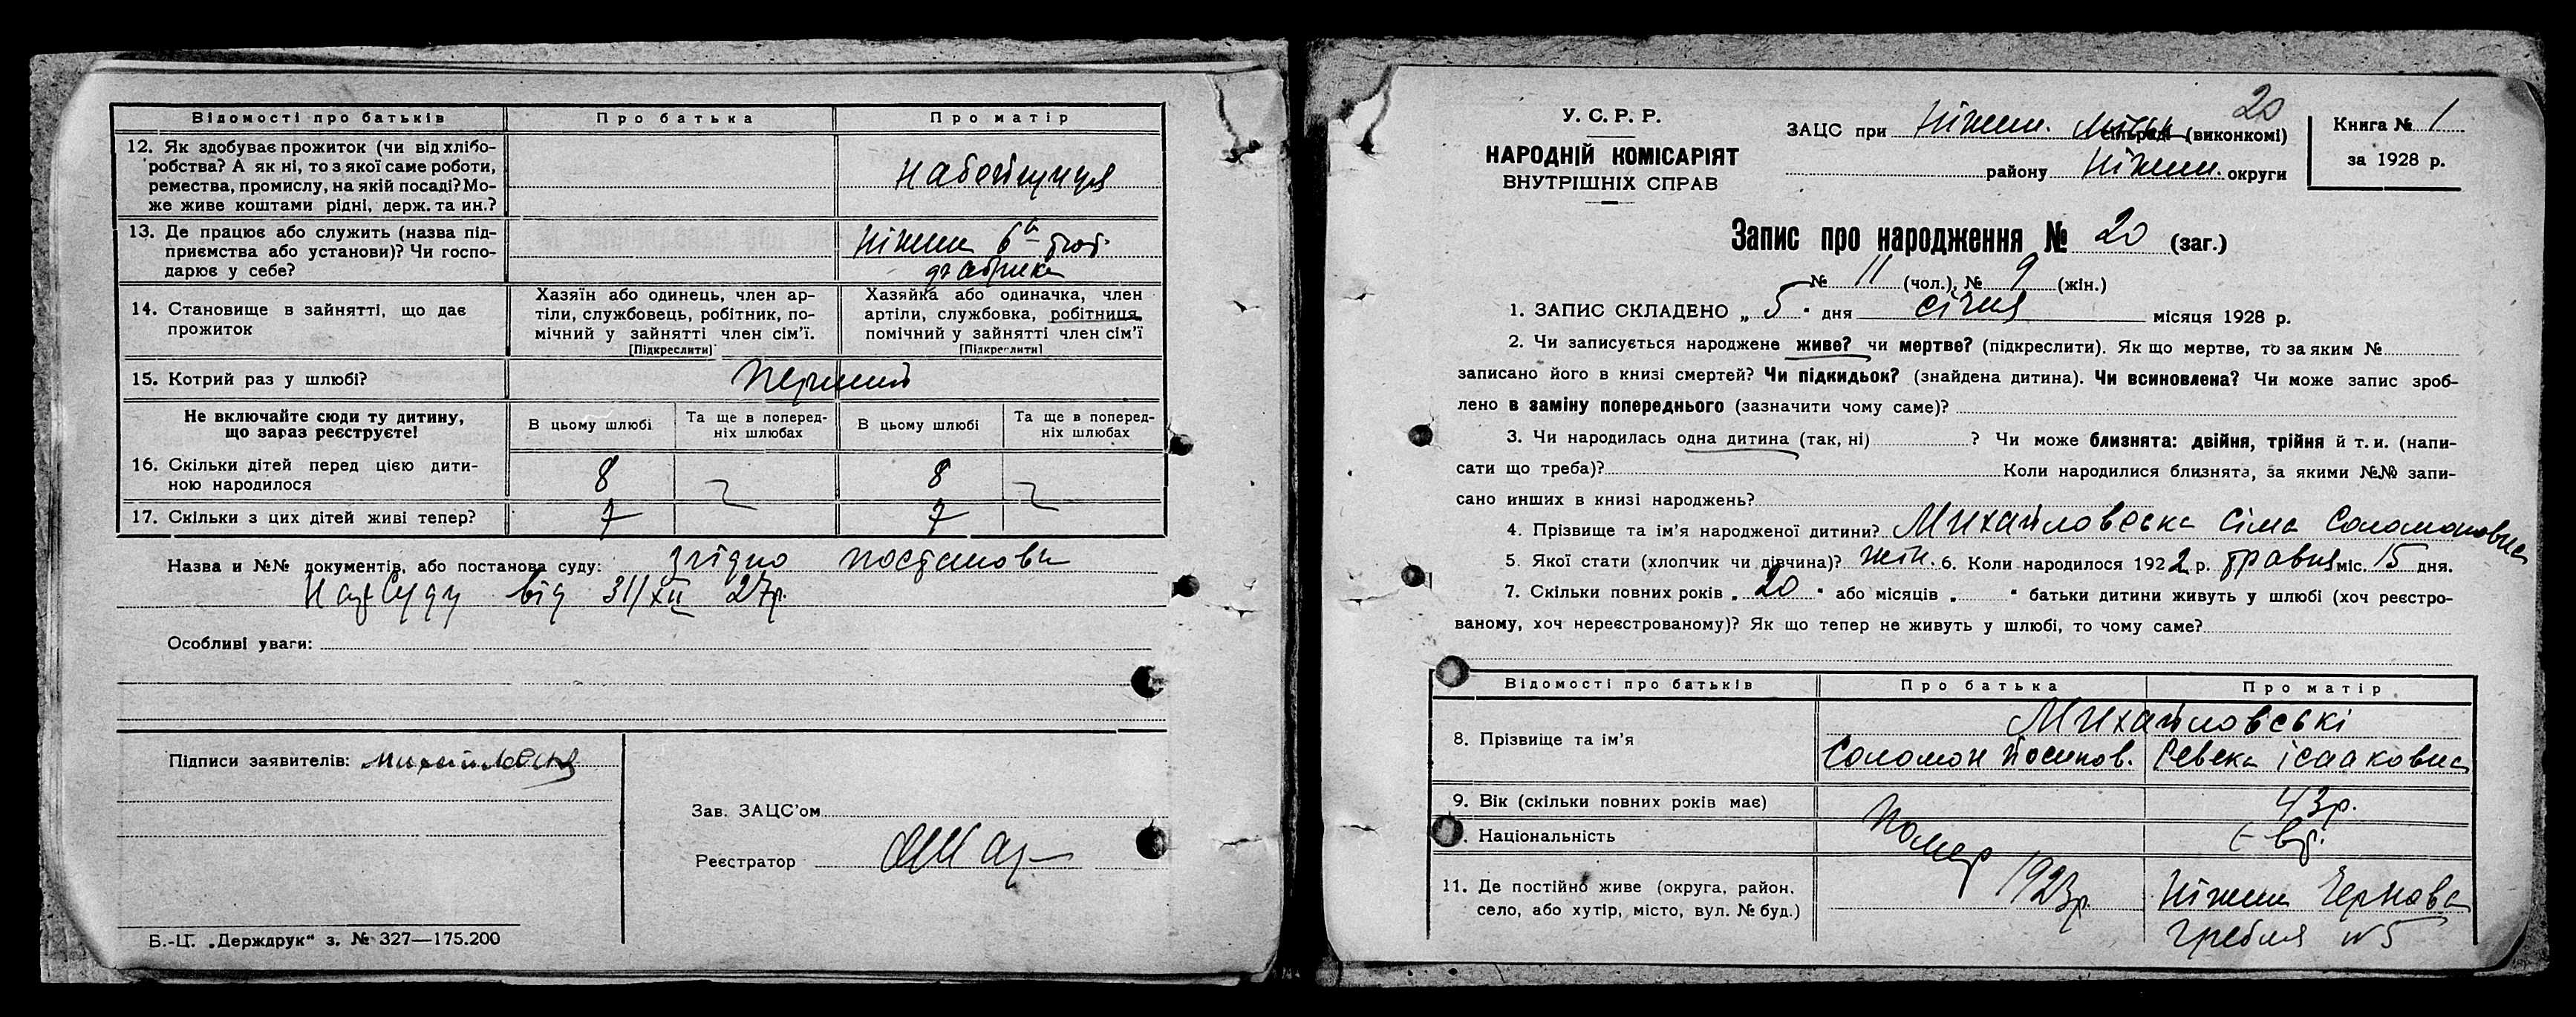 Відомості про батьків Про батька Про матір
12. Як здобуває прожиток (чи від хлібо-
робства? А як ні, то з якої саме роботи,
ремества, промислу, на якій посаді? Мо-
же живе коштами рідні, держ. та ин.?
набойщиця
13. Де працює або служить (назва під-
приємства або установи)? Чи госпо-
дарює у себе?
Ніжин 6а тют.
фабрика
14. Становище в зайнятті, що дає
прожиток
Хазяїн або одинець, член ар-
тіли, службовець, робітник, по-
мічний у зайнятті член сім'ї.
[Підкреслити]
Хазяйка або одиначка, член
артіли, службовка, робітниця,
помічний у зайнятті член сім'ї
[Підкреслити]
15. Котрий раз у шлюбі? перший
Не включайте сюди ту дитину,
що зараз реєструєте!
В цьому шлюбі
Та ще в поперед-
ніх шлюбах
В цьому шлюбі
Та ще в поперед-
ніх шлюбах
16. Скільки дітей перед цією дити-
ною народилося
8 8
17. Скільки з цих дітей живі тепер? 7 7
Назва и №№ документів, або постанова суду: згідно постанови
НарСуду від 31/XII 27р.
Особливі уваги:
Підписи заявителів:
Зав. ЗАЦС'ом
Реєстратор
Б.-Ц. „Держдрук" з. № 327—175.200
20
У. С. Р. Р.
НАРОДНІЙ КОМІСАРІЯТ
ВНУТРІШНІХ СПРАВ
ЗАЦС при Ніжин. міськ сільраді (виконкомі)
району Ніжин. округи
Книга № 1
за 1928 р.
Запис про народження № 20 (заг.)
№ 11 (чол.), № 9 (жін.)
1. ЗАПИС СКЛАДЕНО „ 5 " дня січня місяця 1928 р.
2. Чи записується народжене живе? чи мертве? (підкреслити). Як що мертве, то за яким №
записано його в книзі смертей? Чи підкидьок? (знайдена дитина). Чи всиновлена? Чи може запис зроб-
лено в заміну попереднього (зазначити чому саме)?
3. Чи народилась одна дитина (так, ні) ? Чи може близнята: двійня, трійня й т. и. (напи-
сати що треба)? Коли народилися близнята, за якими №№ запи-
сано инших в книзі народжень?
4. Прізвище та ім'я народженої дитини? Михайловська Сіма Соломоновна
5. Якої стати (хлопчик чи дівчина)? жін. 6. Коли народилося 1922 р. травня міс. 15 дня.
7. Скільки повних років „ 20 " або місяців „ " батьки дитини живуть у шлюбі (хоч реєстро-
ваному, хоч нереєстрованому)? Як що тепер не живуть у шлюбі, то чому саме?
Відомості про батьків Про батька Про матір
Михайловські
8. Прізвище та ім'я Соломон Йосипов. Ревека Ісааковна
9. Вік (скільки повних років має) 43р.
Національність Євр.
помер 1923р.
11. Де постійно живе (округа, район,
село, або хутір, місто, вул. № буд.)
Ніжин Чернова
гребля №5